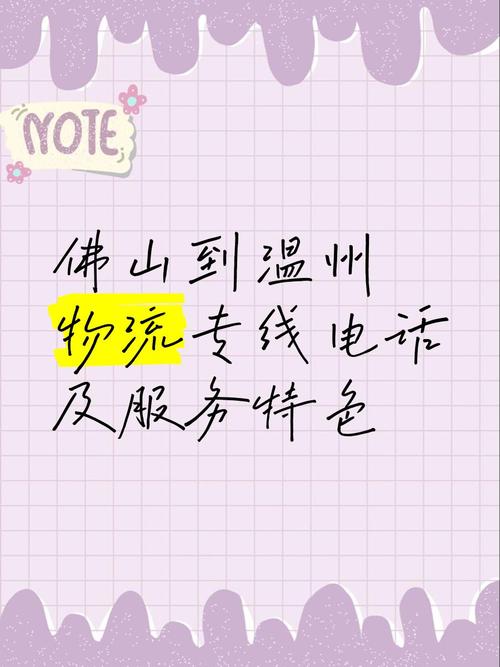 NOTE
佛山到温州
物流专线电话
及服务特色